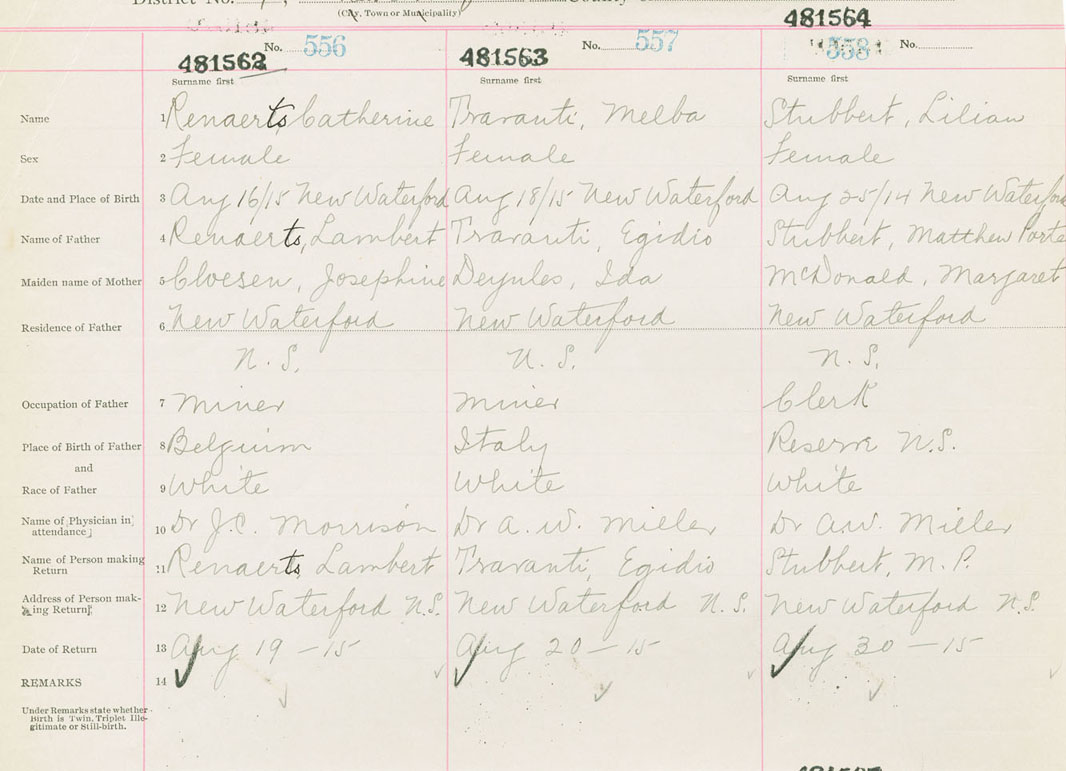 District No.
(City, Town or Municipality)
481562 No. 556 481563 No. 557 481564 558 No.
Surname first Surname first Surname first
Name 1 Renaerts, Catherine Travanti, Melba Stubbert, Lilian
Sex 2 Female Female Female
Date and Place of Birth 3 Aug 16/15 New Waterford Aug 18/15 New Waterford Aug 25/14 New Waterford
Name of Father 4 Renaerts, Lambert Travanti, Egidio Stubbert, Matthew Porte
Maiden name of Mother 5 Cloesen, Josephine Deynles, Ida McDonald, Margaret
Residence of Father 6 New Waterford New Waterford New Waterford
N. S. N. S. N. S.
Occupation of Father 7 Miner Miner Clerk
Place of Birth of Father 8 Belgium Italy Reserve N.S.
and
Race of Father 9 White White White
Name of Physician in attendance 10 Dr J.C. Morrison Dr A. W. Miller Dr A.W. Miller
Name of Person making Return 11 Renaerts, Lambert Travanti, Egidio Stubbert, M. P.
Address of Person making Return 12 New Waterford N.S. New Waterford N.S. New Waterford N.S.
Date of Return 13 Aug 19 - 15 Aug 20 - 15 Aug 30 - 15
REMARKS 14
Under Remarks state whether
Birth is Twin, Triplet Ille-
gitimate or Still-birth.